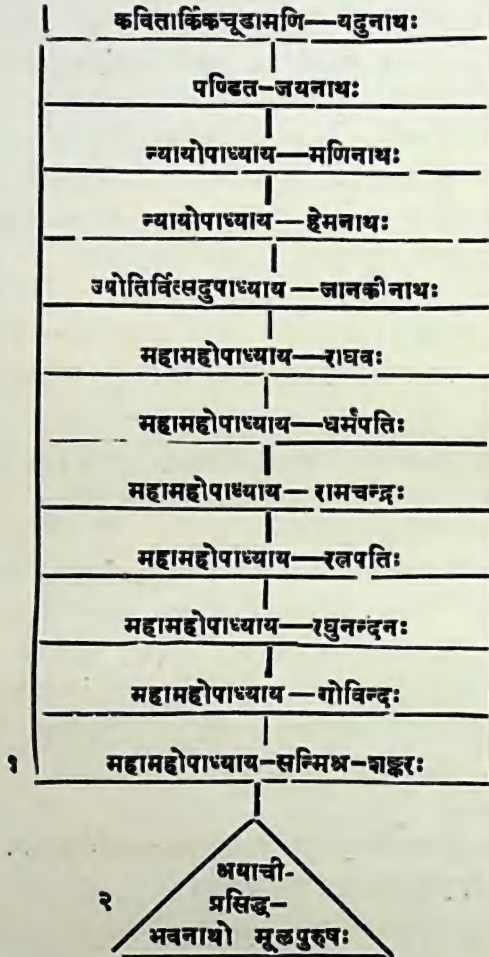 कवितार्किकचूडामणि—यदुनाथः
पण्डित-जयनाथः
न्यायोपाध्याय—मणिनाथः
न्यायोपाध्याय—हेमनाथः
ज्योतिर्वित्सदुपाध्याय—जानकीनाथः
महामहोपाध्याय—राघवः
महामहोपाध्याय—धर्मपतिः
महामहोपाध्याय—रामचन्द्रः
महामहोपाध्याय—रत्नपतिः
महामहोपाध्याय—रघुनन्दनः
महामहोपाध्याय—गोविन्दः
१ महामहोपाध्याय-सन्मिश्र-शङ्करः
अयाची-
२ प्रसिद्ध-
भवनाथो मूलपुरुषः